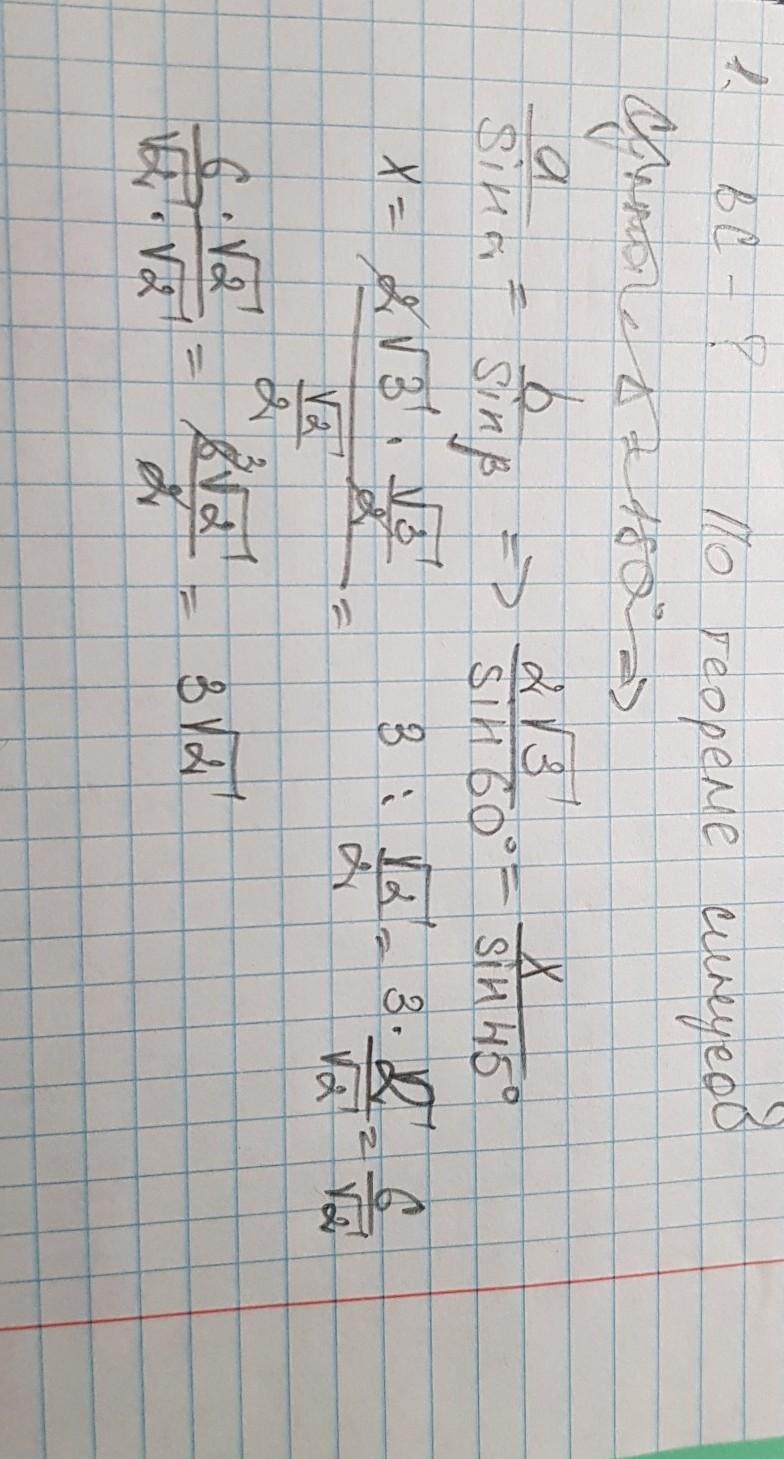 1. ВС - ? По теореме синусов
= 180° =>
a/sin α = b/sin β => 2√3/sin 60° = x/sin 45°
x = (2√3 · √3/2)/(√2/2) = 3 : √2/2 = 3 · 2/√2 = 6/√2
(6 · √2)/(√2 · √2) = 6√2/2 = 3√2